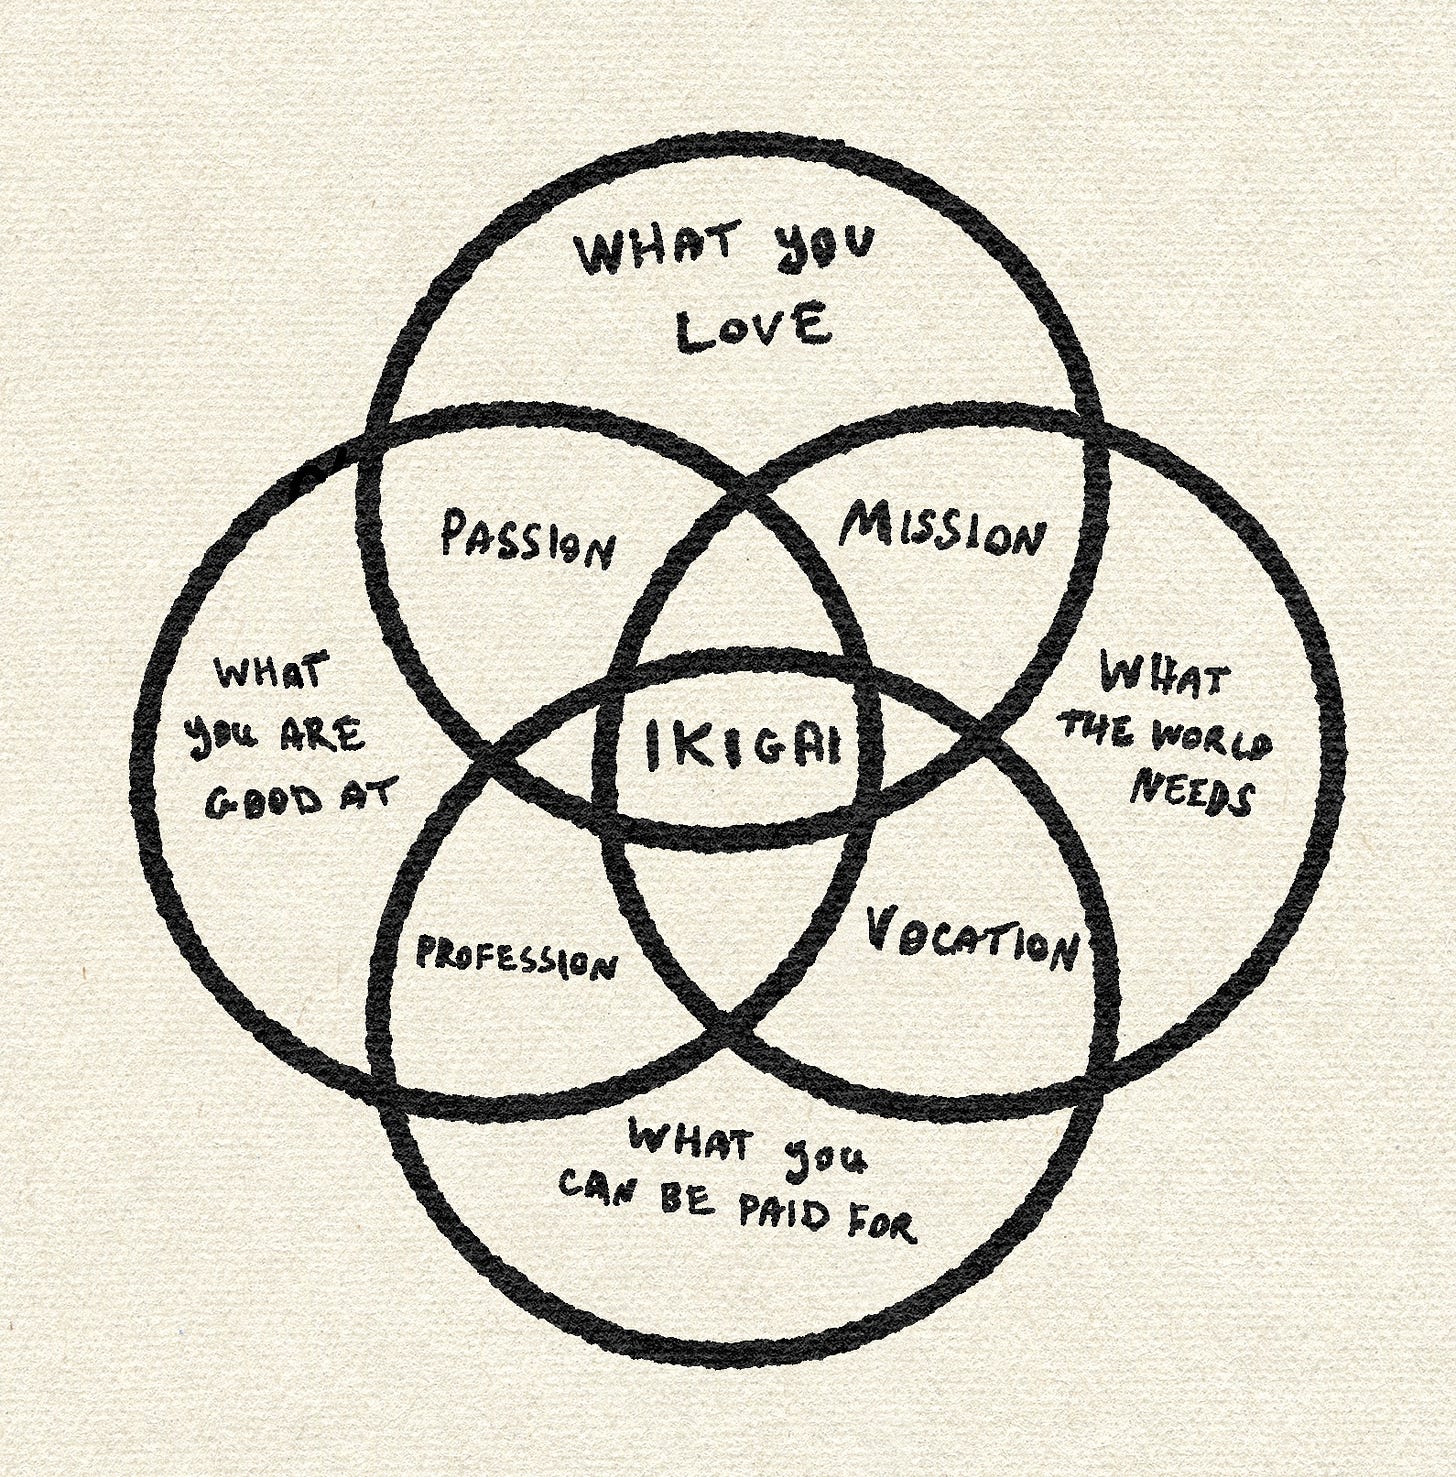 WHAT YOU
LOVE
PASSION
MISSION
WHAT
YOU ARE
GOOD AT
IKIGAI
WHAT
THE WORLD
NEEDS
PROFESSION
VOCATION
WHAT YOU
CAN BE PAID FOR